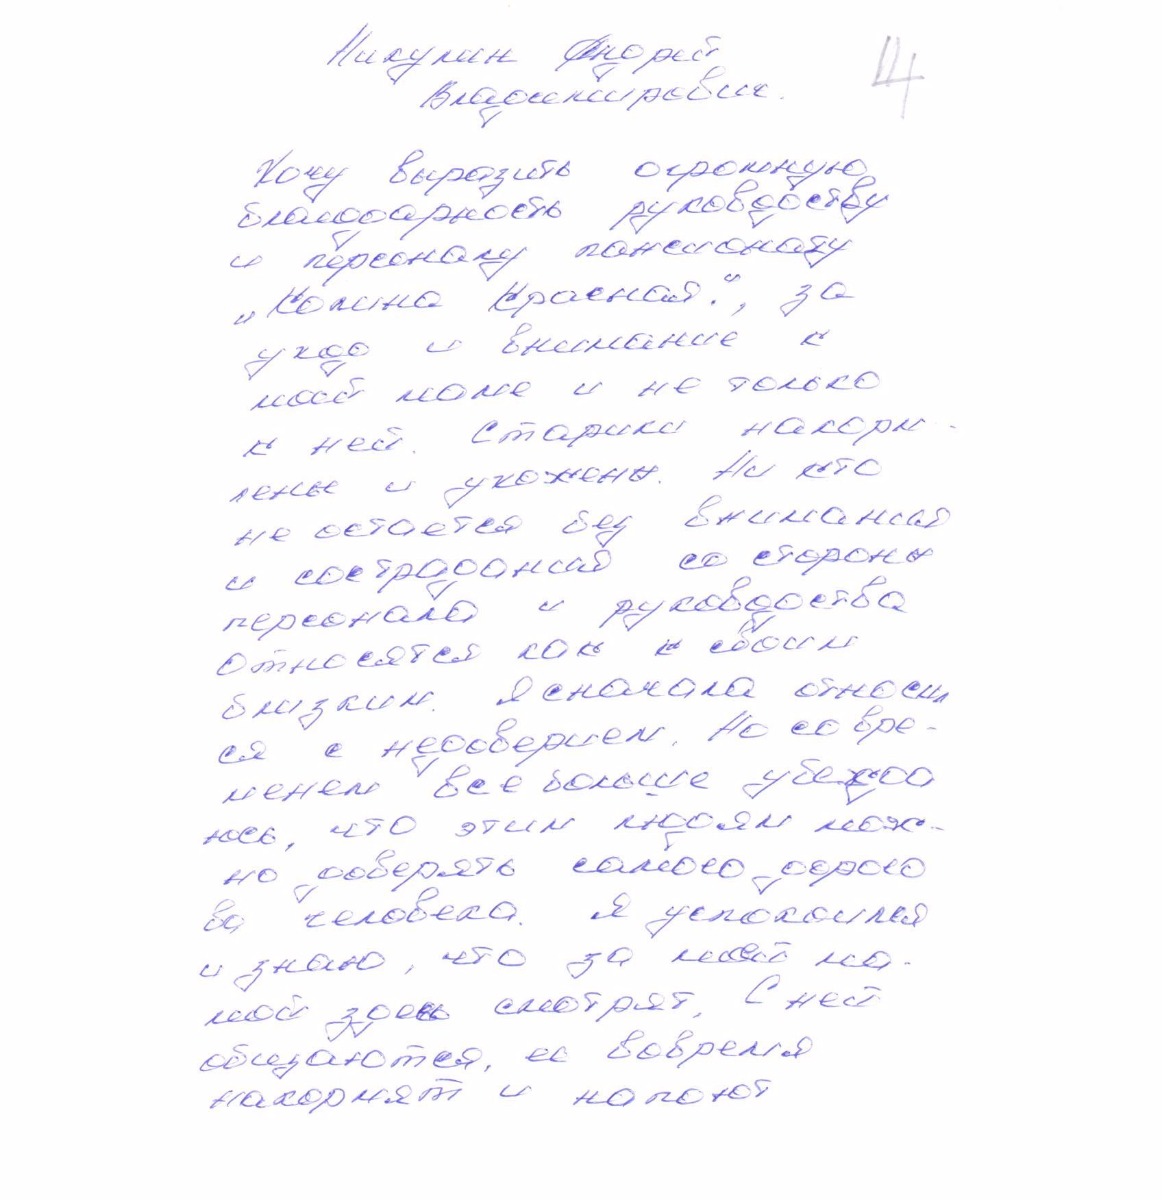 Никулин Андрей
Владимирович.
4
Хочу выразить огромную
благодарность руководству
и персоналу пансионату
„Калина Красная.“, за
уход и внимание к
моей маме и не только
к ней. Старики накорм-
лены и ухожены. Ни кто
не остается без внимания
и сострадания со стороны
персонала и руководства
относятся как к своим
близким. Я сначала относил
ся с недоверием. Но со вре-
менем все больше убежда
юсь, что этим людям мож-
но доверять самого дорого
во человека. Я успокоился
и знаю, что за моей ма-
мой здесь смотрят. С ней
общаются, ее вовремя
накормят и напоют